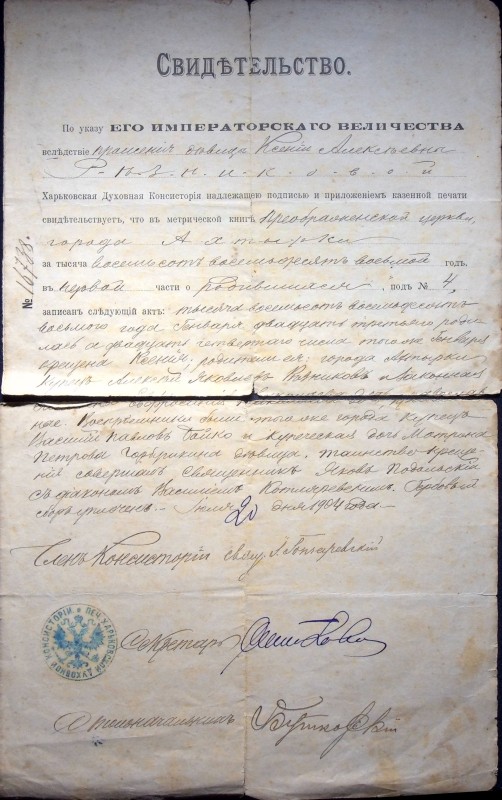 СВИДѢТЕЛЬСТВО.
По указу ЕГО ИМПЕРАТОРСКАГО ВЕЛИЧЕСТВА
вслѣдствіе прошенія дѣвицы Ксеніи Алексѣевны
Р-ѣ-з-н-и-к-о-в-о-й
Харьковская Духовная Консисторія надлежащею подписью и приложеніем казенной печати
свидѣтельствуетъ, что въ метрической книгѣ Преображенской церкви,
города А-х-т-ы-р-к-и
за тысяча восемьсотъ восемьдесятъ восьмой годъ,
въ первой части о родившихся, подъ № 4,
записан слѣдующій актъ: тысяча восемьсотъ восемьдесятъ
восьмого года Января двадцать третьяго роди-
лась а двадцать четвертаго числа того же Января
крещена Ксенія; родители ея: города Ахтырки
купецъ Алексѣй Яковлевъ Рѣзниковъ и законная
ные. Воспріемники были: того же города купецъ
Василій Павловъ Бойко и купеческая дочь Матрона
Петрова дѣвица, таинство креще-
нія совершалъ священникъ Яковъ Подольскій
съ діакономъ Василіемъ Котляревскимъ. Гербовый
сборъ уплаченъ. Іюля 20 дня 1904 года.
Членъ Консисторіи свящ. Гончаревскій
Секретарь
Столоначальникъ
№ 16738.
ПЕЧ. ХАРЬКОВСКОЙ ДУХОВНОЙ КОНСИСТОРІИ